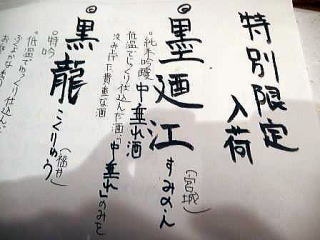 特別限定
入荷
墨廼江 すみのえ
(宮城)
純米吟醸 中垂れ酒
低温でじっくり仕込んだ酒の
汲み上げた貴重な酒
"中垂れ"のみを
黒龍 こくりゅう
(福井)
特吟
低温でじっくり仕込んだ